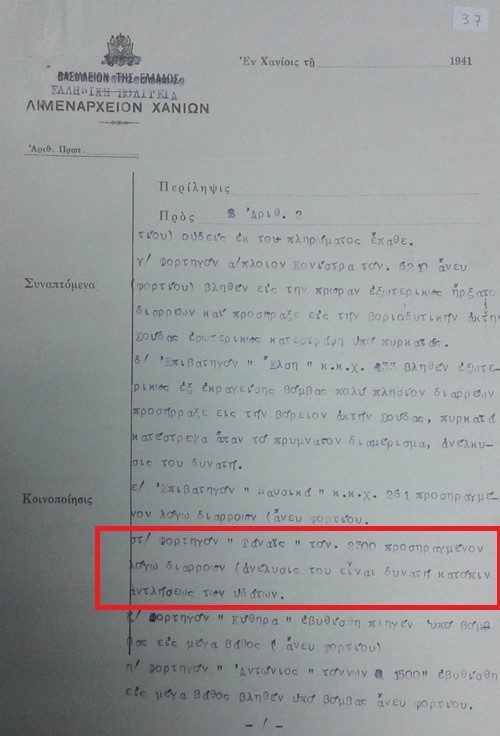 37
Ἐν Χανίοις τῇ 1941
ΒΑΣΙΛΕΙΟΝ ΤΗΣ ΕΛΛΑΔΟΣ
ΕΛΛΗΝΙΚΗ ΠΟΛΙΤΕΙΑ
ΛΙΜΕΝΑΡΧΕΙΟΝ ΧΑΝΙΩΝ
Ἀριθ. Πρωτ.
Περίληψις
Πρὸς Ἀριθ. 2
τίου) οὐδείς ἐκ του πληρώματος ἔπαθε.
γ/ Φορτηγόν α/πλοιον Κονίστρα τον. 6210 ἄνευ
Συναπτόμενα
(φορτίου) βληθέν εἰς τήν πρῶραν ἐξωτερικῶς ἤρξατο
διαρρέων καί προσήραξε εἰς τήν βοριαδυτικήν ἀκτήν
Σούδας ἐσωτερικῶς κατεστράφη ὑπό πυρκαϊᾶς.
δ/ Ἐπιβατηγόν " Ἔλση " κ.κ.χ. 433 βληθέν ἐξωτε-
ρικῶς ἐξ ἐκραγείσης βόμβας πολύ πλησίον διαρρέων
προσήρραξε εις τήν βόρειον ἀκτήν Σούδας, πυρκαϊά
κατέστρεψε ἅπαν τό πρυμναῖον διαμέρισμα, ἀνέλκυ-
σις του δυνατή.
Κοινοποίησις
ε/ Ἐπιβατηγόν " Ναυσικᾶ " κ.κ.χ. 261 προσηραγμέ-
νον λόγω διαρροῶν (ἄνευ φορτίου.
στ/ Φορτηγόν " Τάναϊς " τον. 2300 προσηραγμένον
λόγω διαρροῶν (ἀνέλυσις του εἶναι δυνατή κατόπιν
ἀντλήσεως τῶν ὑδάτων.
ζ/ Φορτηγόν " Κύθηρα " ἐβυθίσθη πληγέν ὑπό βόμ-
βας εἰς μέγα βάθος ( ἄνευ φορτίου)
η/ Φορτηγόν " Ἀντώνιος " τόννων 1500" ἐβυθίσθη
εἰς μέγα βάθος βληθέν ὑπό βόμβας ἄνευ φορτίου.
- / -